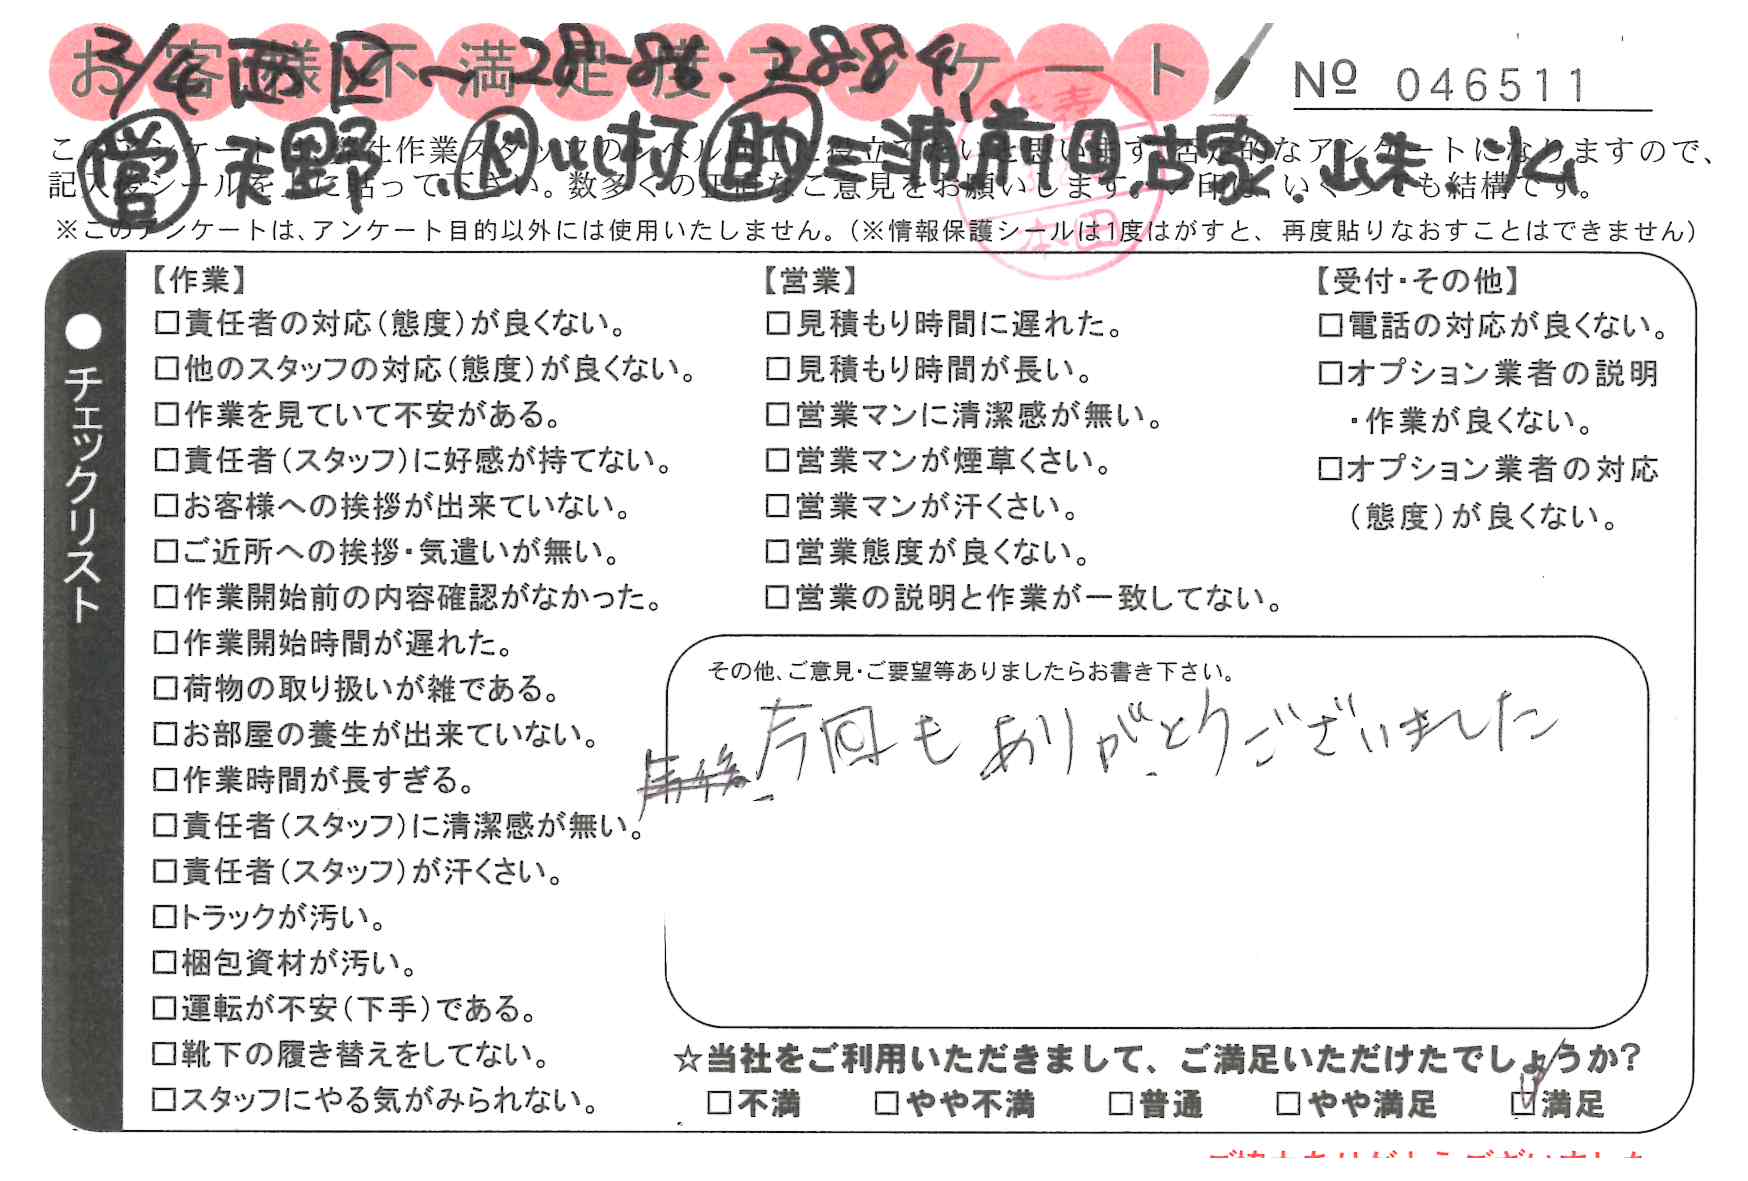 お客様不満足度アンケート
3/4 西区〜 28-86. 28-84
№ 046511
営 天野
助 三浦 前田
このアンケートは、当社作業スタッフのレベル向上に役立てたいと思います。否定的なアンケートになりますので、
記入後シールを上に貼って下さい。数多くの正直なご意見をお願いします。レ印は、いくつでも結構です。
※このアンケートは、アンケート目的以外には使用いたしません。(※情報保護シールは1度はがすと、再度貼りなおすことはできません)
●チェックリスト
【作業】
□責任者の対応(態度)が良くない。
□他のスタッフの対応(態度)が良くない。
□作業を見ていて不安がある。
□責任者(スタッフ)に好感が持てない。
□お客様への挨拶が出来ていない。
□ご近所への挨拶・気遣いが無い。
□作業開始前の内容確認がなかった。
□作業開始時間が遅れた。
□荷物の取り扱いが雑である。
□お部屋の養生が出来ていない。
□作業時間が長すぎる。
□責任者(スタッフ)に清潔感が無い。
□責任者(スタッフ)が汗くさい。
□トラックが汚い。
□梱包資材が汚い。
□運転が不安(下手)である。
□靴下の履き替えをしてない。
□スタッフにやる気がみられない。
【営業】
□見積もり時間に遅れた。
□見積もり時間が長い。
□営業マンに清潔感が無い。
□営業マンが煙草くさい。
□営業マンが汗くさい。
□営業態度が良くない。
□営業の説明と作業が一致してない。
【受付・その他】
□電話の対応が良くない。
□オプション業者の説明
・作業が良くない。
□オプション業者の対応
(態度)が良くない。
その他、ご意見・ご要望等ありましたらお書き下さい。
今回もありがとうございました
☆当社をご利用いただきまして、ご満足いただけたでしょうか?
□不満 □やや不満 □普通 □やや満足 ☑満足